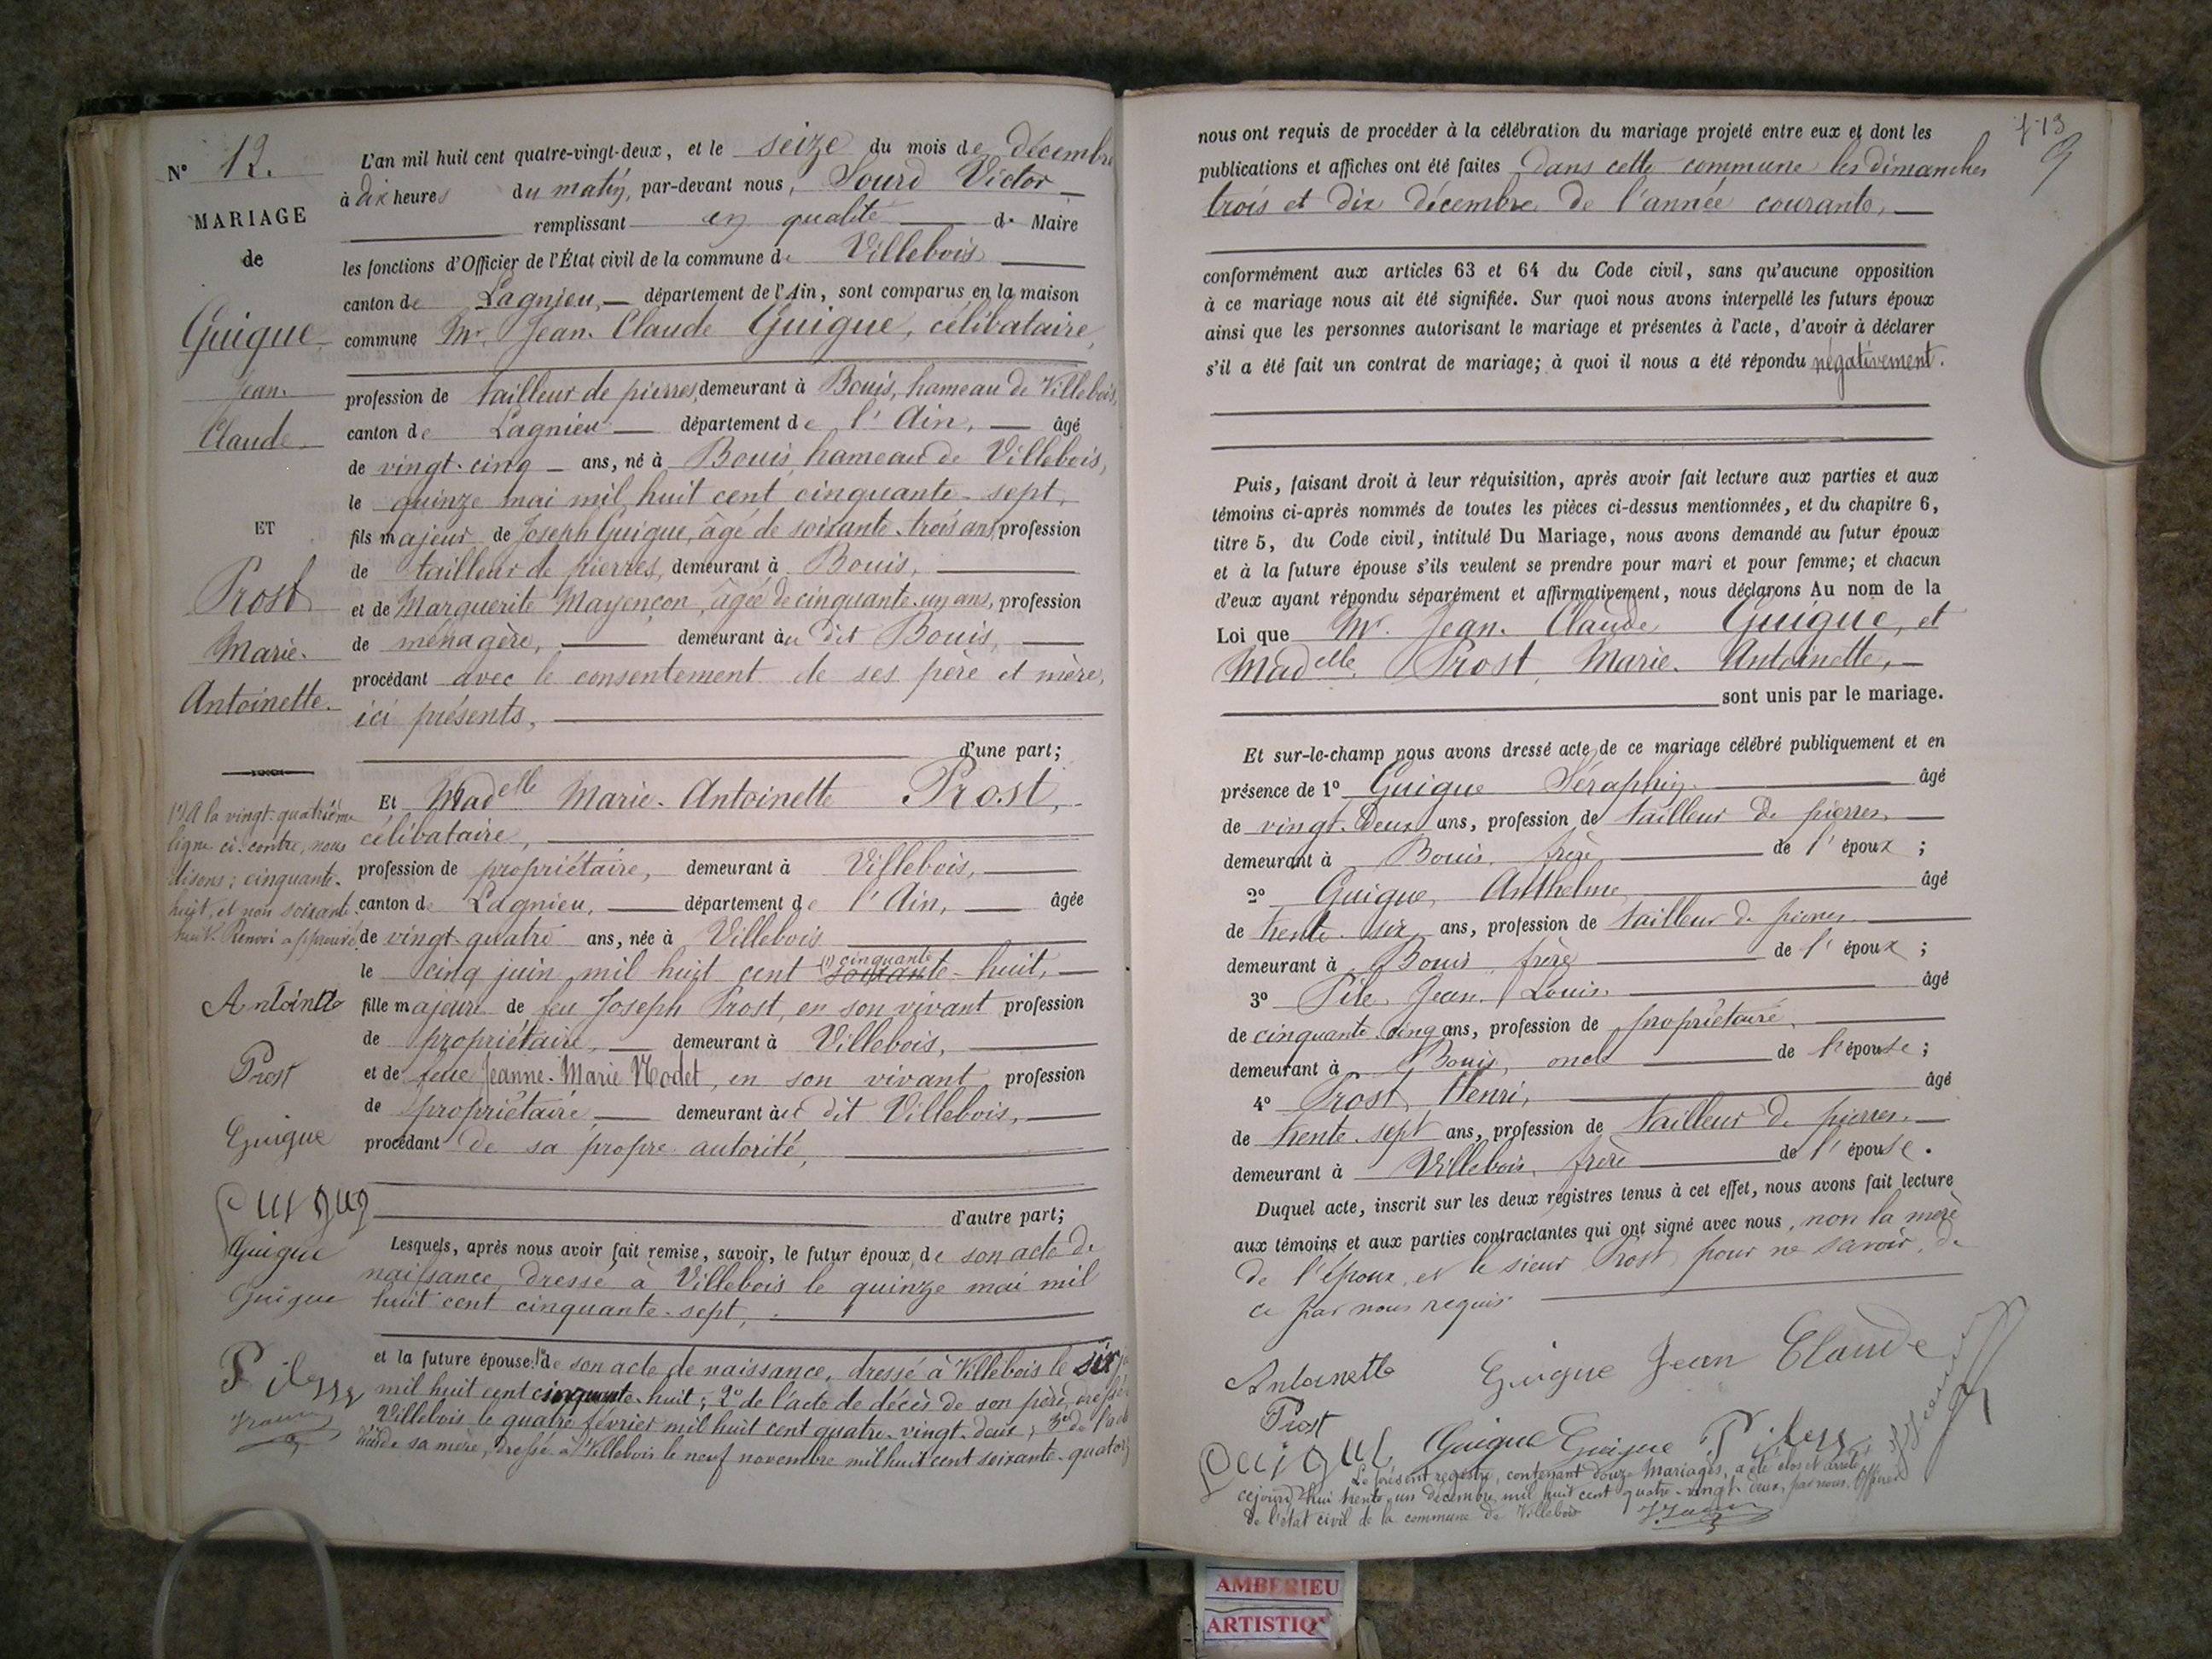 N° 12.
MARIAGE
de
Guigue
Jean-
Claude
ET
Prost
Marie-
Antoinette.
(1) A la vingt-quatrième
ligne ci-contre, nous
disons: cinquante-
huit, et non soixante-
huit. Renvoi approuvé.
Antoinette
Prost
Guigue
Guigue
Guigue
Guigue
L'an mil huit cent quatre-vingt-deux, et le seize du mois de décembre
à dix heures du matin, par-devant nous, Sourd Victor
remplissant en qualité de Maire
les fonctions d'Officier de l'État civil de la commune de Villebois
canton de Lagnieu, département de l'Ain, sont comparus en la maison
commune Mr. Jean-Claude Guigue, célibataire,
profession de tailleur de pierres, demeurant à Bouis, hameau de Villebois,
canton de Lagnieu département de l'Ain, âgé
de vingt-cinq ans, né à Bouis, hameau de Villebois,
le quinze mai mil huit cent cinquante-sept,
fils majeur de Joseph Guigue, âgé de soixante-trois ans, profession
de tailleur de pierres, demeurant à Bouis,
et de Marguerite Mayençon, âgée de cinquante-un ans, profession
de ménagère, demeurant au dit Bouis,
procédant avec le consentement de ses père et mère,
ici présents,
d'une part;
Et Madelle Marie-Antoinette Prost,
célibataire,
profession de propriétaire, demeurant à Villebois,
canton de Lagnieu, département de l'Ain, âgée
de vingt-quatre ans, née à Villebois
le cinq juin mil huit cent (1) cinquante soixante-huit,
fille majeure de feu Joseph Prost, en son vivant profession
de propriétaire, demeurant à Villebois,
et de feue Jeanne-Marie Nodet, en son vivant profession
de propriétaire, demeurant au dit Villebois,
procédant de sa propre autorité,
d'autre part;
Lesquels, après nous avoir fait remise, savoir, le futur époux, de son acte de
naissance, dressé à Villebois le quinze mai mil
huit cent cinquante-sept,
et la future épouse: 1° de son acte de naissance, dressé à Villebois le six
mil huit cent cinquante-huit; 2° de l'acte de décès de son père, dressé
Villebois le quatre février mil huit cent quatre-vingt-deux; 3° de l'acte
de sa mère, dressé à Villebois le neuf novembre mil huit cent soixante-quatorz
f. 13
nous ont requis de procéder à la célébration du mariage projeté entre eux et dont les
publications et affiches ont été faites dans cette commune les dimanches
trois et dix décembre de l'année courante,
conformément aux articles 63 et 64 du Code civil, sans qu'aucune opposition
à ce mariage nous ait été signifiée. Sur quoi nous avons interpellé les futurs époux
ainsi que les personnes autorisant le mariage et présentes à l'acte, d'avoir à déclarer
s'il a été fait un contrat de mariage; à quoi il nous a été répondu négativement.
Puis, faisant droit à leur réquisition, après avoir fait lecture aux parties et aux
témoins ci-après nommés de toutes les pièces ci-dessus mentionnées, et du chapitre 6,
titre 5, du Code civil, intitulé Du Mariage, nous avons demandé au futur époux
et à la future épouse s'ils veulent se prendre pour mari et pour femme; et chacun
d'eux ayant répondu séparément et affirmativement, nous déclarons Au nom de la
Loi que Mr. Jean-Claude Guigue, et
Madelle Prost, Marie-Antoinette,
sont unis par le mariage.
Et sur-le-champ nous avons dressé acte de ce mariage célébré publiquement et en
présence de 1° Guigue Séraphin âgé
de vingt-deux ans, profession de tailleur de pierres,
demeurant à Bouis, frère de l'époux;
2° Guigue, Anthelme âgé
de trente-six ans, profession de tailleur de pierres
demeurant à Bouis frère de l'époux;
3° Pile, Jean-Louis âgé
de cinquante-cinq ans, profession de propriétaire,
demeurant à Bouis, oncle de l'épouse;
4° Prost, Henri, âgé
de trente-sept ans, profession de tailleur de pierres
demeurant à Villebois, frère de l'épouse.
Duquel acte, inscrit sur les deux registres tenus à cet effet, nous avons fait lecture
aux témoins et aux parties contractantes qui ont signé avec nous, non la mère
de l'époux, et le sieur Prost, pour ne savoir, de
ce par nous requis
Antoinette Guigue Jean Claude
Prost
Guigue Guigue
Le présent registre, contenant douze Mariages, a été clos et arrêté
cejourd'hui trente-un décembre mil huit cent quatre-vingt-deux, par nous, Officier
de l'état civil de la commune de Villebois
AMBERIEU
ARTISTIQ